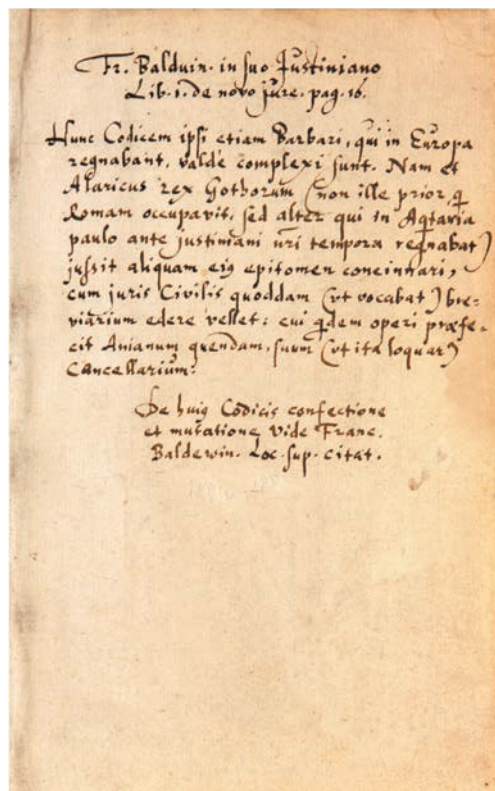 Fr. Balduin. in suo Justiniano
Lib. 1. de novo jure. pag. 16.
Hunc Codicem ipsi etiam Barbari, qui in Europa
regnabant, valdè complexi sunt. Nam et
Alaricus rex Gothorum (non ille prior, q̄
Romam occupavit, sed alter qui in Aq̄taria
paulo ante justiniani n̄ri tempora regnabat)
jussit aliquam eiꝰ epitomen concinnari,
cum juris Civilis quoddam (vt vocabat) bre-
viarium edere vellet: cui q̄dem operi præfe-
cit Anianum quendam, suum (vt ita loquar)
Cancellarium.
De huiꝰ Codicis confectione
et mutatione vide Franc.
Baldewin. Loc. sup. citat.